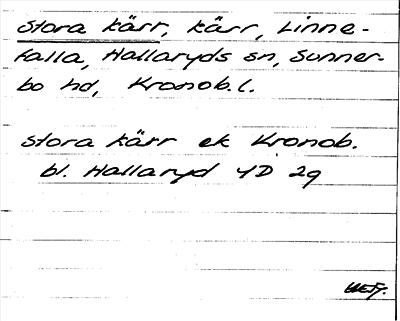 Stora kärr, kärr, Linne-
falla, Hallaryds sn, Sunner-
bo hd, Kronob. l.
Stora kärr ek Kronob.
bl. Hallaryd 4D 2g